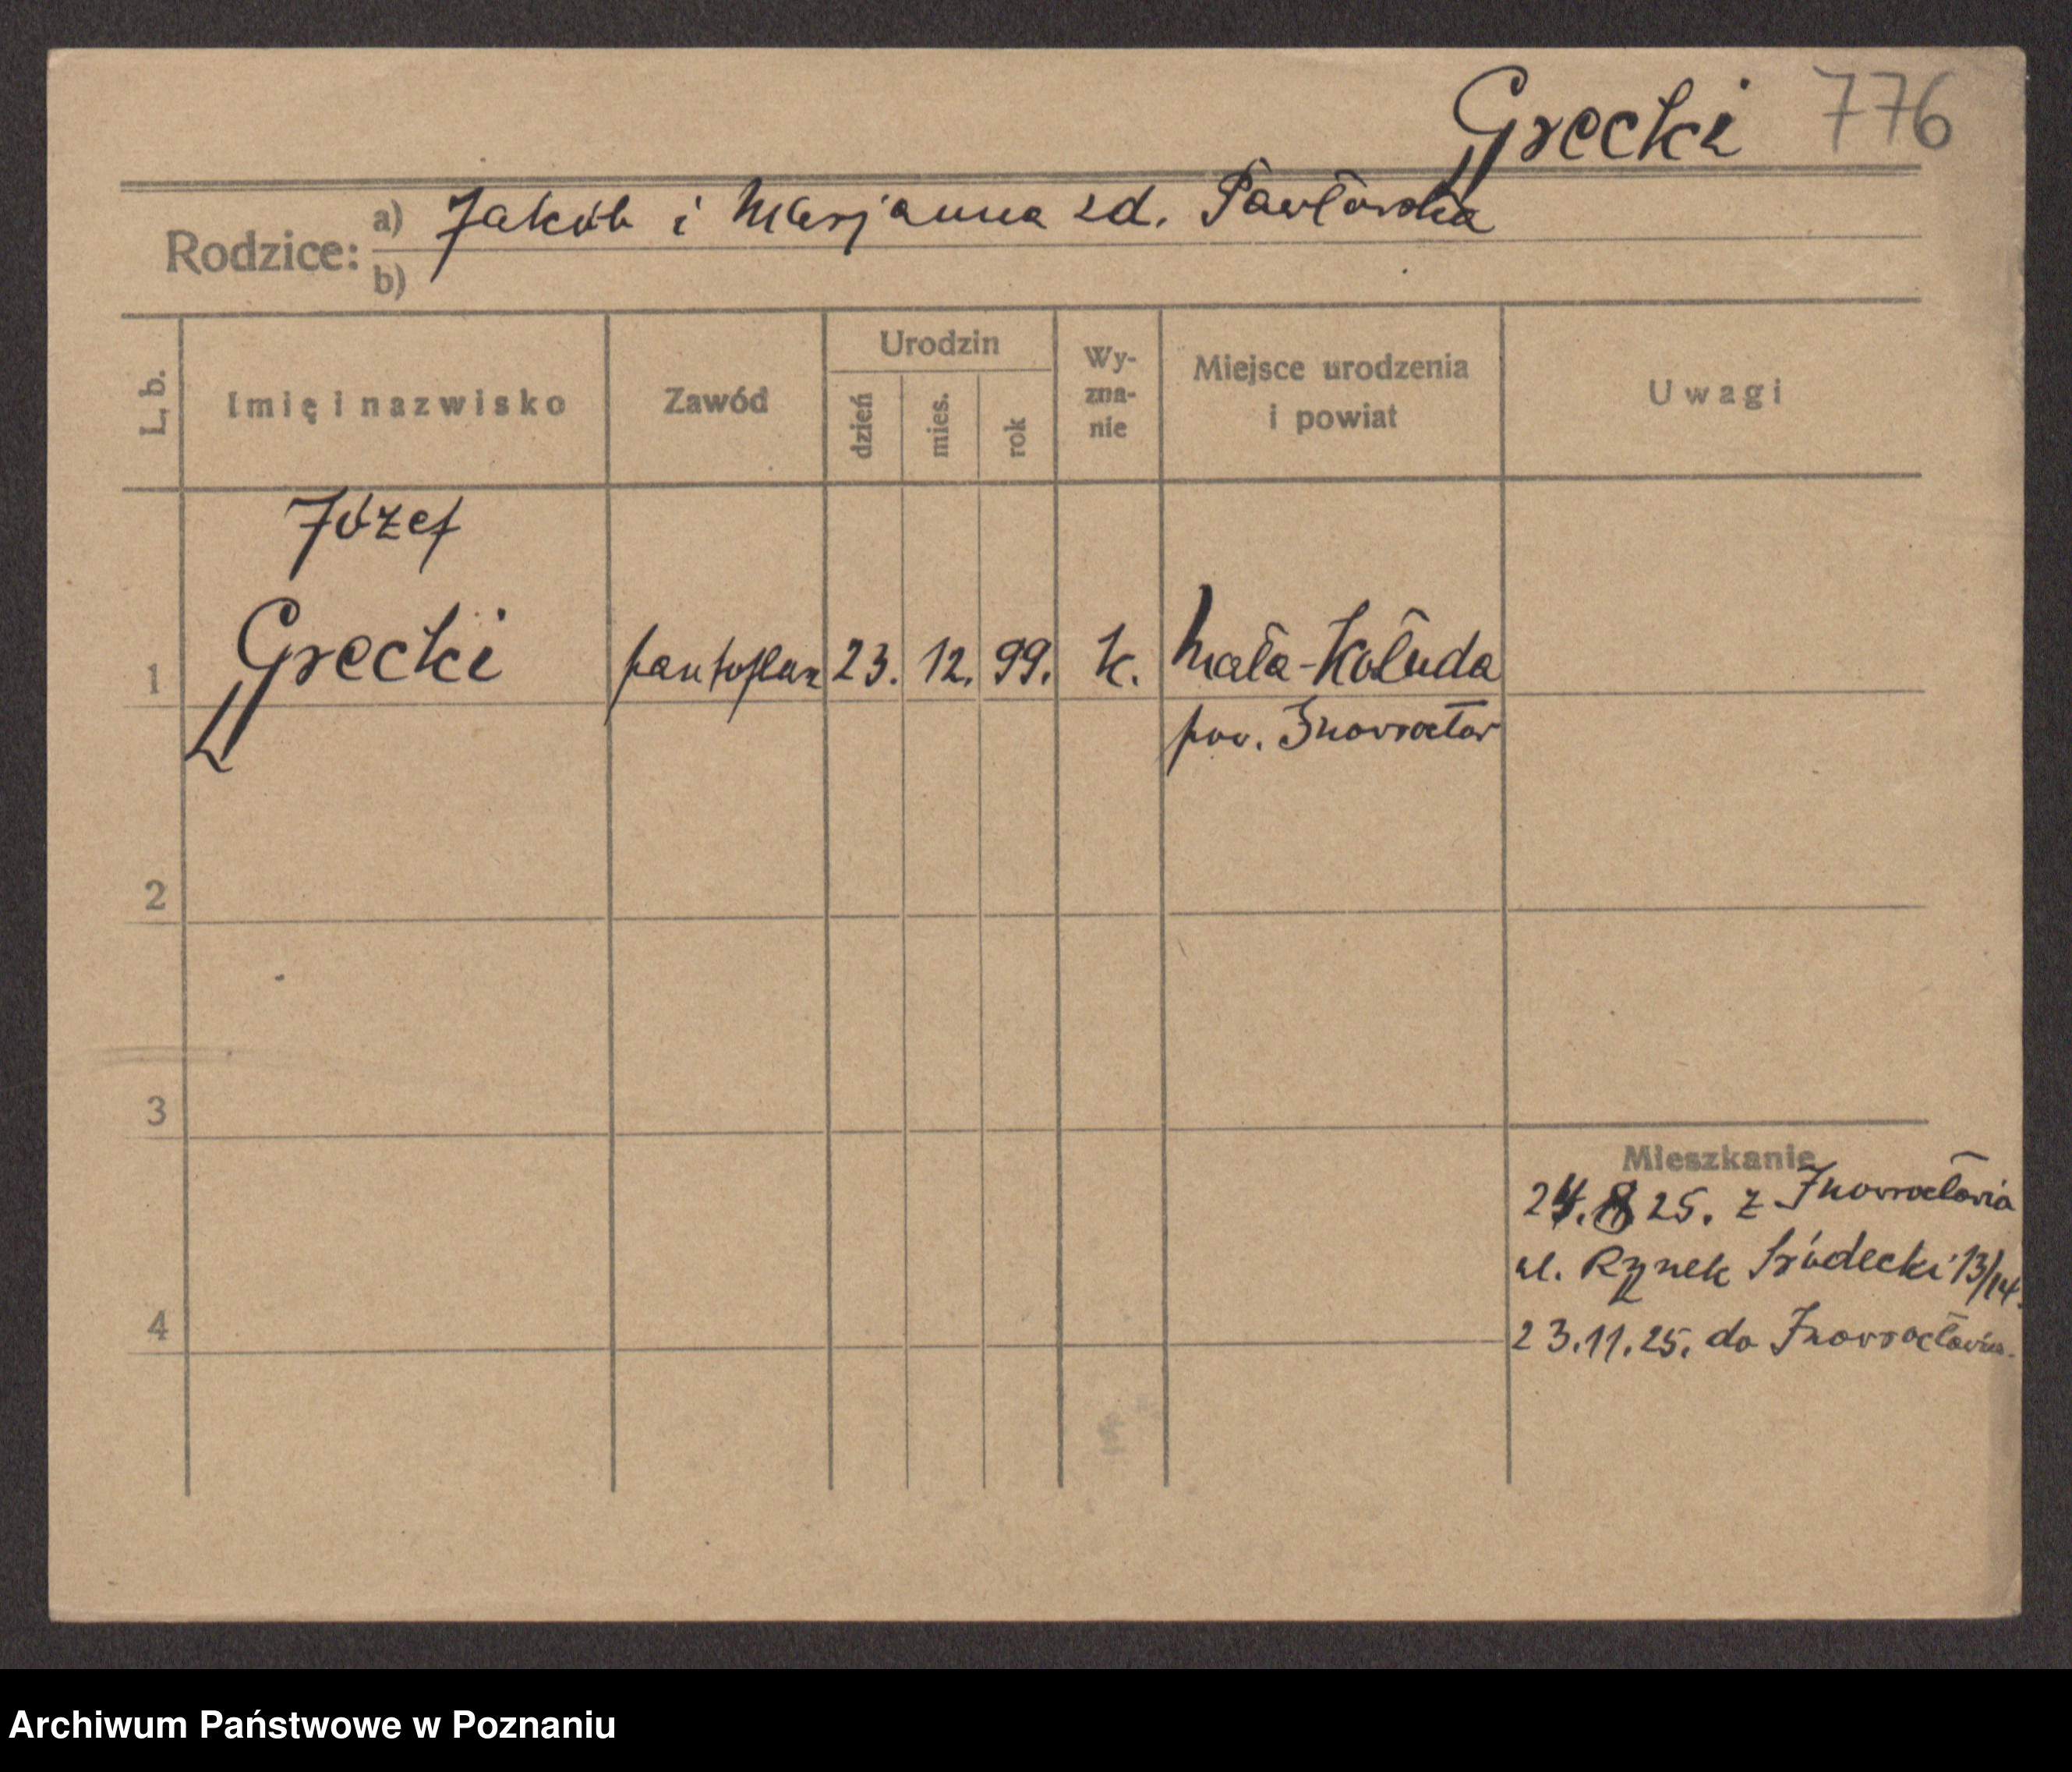 Grecki 776
Rodzice: a) Jakób i Marjanna zd. Pawłowska
b)
L. b.
Imię i nazwisko
Zawód
Urodzin
dzień
mies.
rok
Wy-
zna-
nie
Miejsce urodzenia
i powiat
Uwagi
Józef
1 Grecki pantoflarz 23. 12. 99. k. Mała-Kołuda
pow. Inowrocław
2
3
Mieszkanie
24.8 25. z Inowrocławia
ul. Rynek Śródecki 13/14.
4 23.11.25. do Inowrocławia.
Archiwum Państwowe w Poznaniu